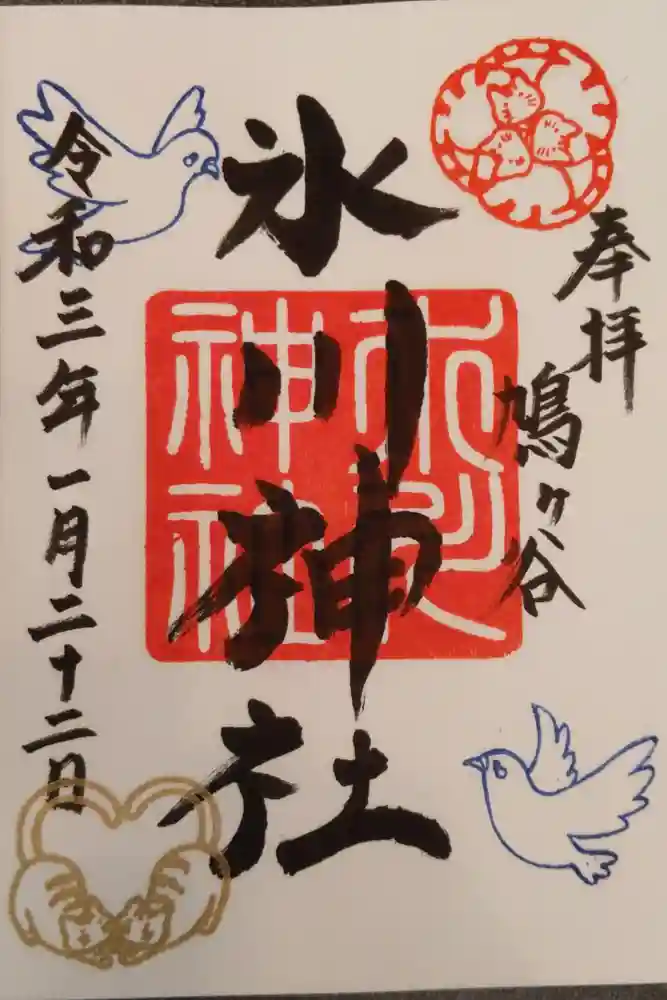 奉拝
鳩ヶ谷
氷川神社
令和三年一月二十二日